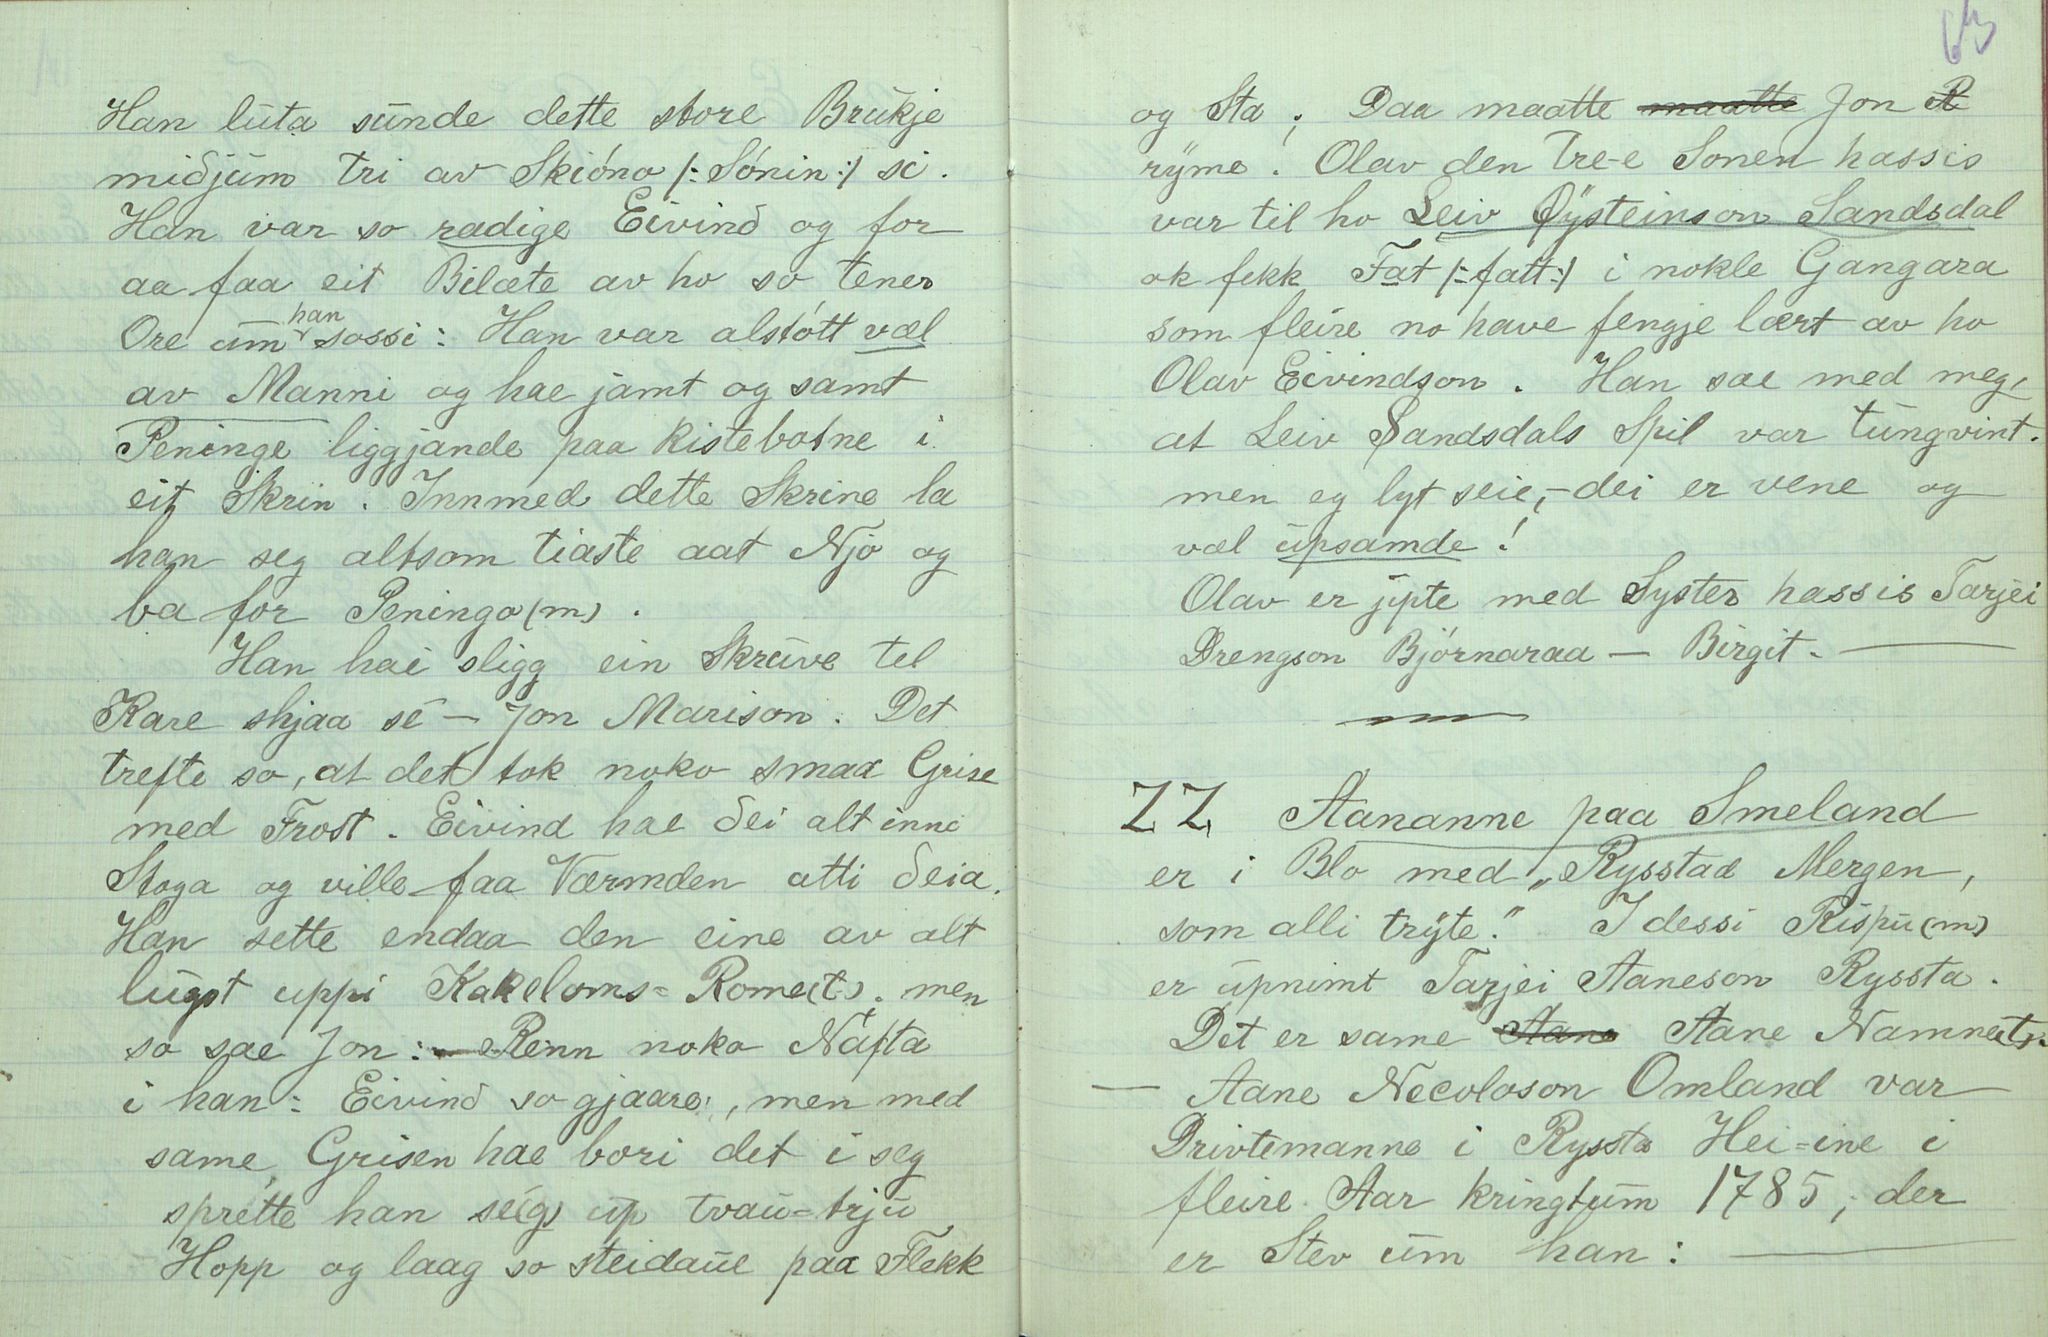 Han lúta sunde dette store Brukje
miðjum tri av Skióno /: Sónin :/ si.
Han var so radige Eivind og for
aa faa eit Bilæte av ho so tener
Ore um han sossi: Han var alstótt væl
av Manni og hae jamt og samt
Peninge liggjande paa Kistebotne i
eit Skrin. Innmed dette Skrine la
han seg altsom tiaste aat Njo og
ba for Peningo (m).
Han hai sligg ein Skruve tel
Kare skjaa sé - Jon Marison. Det
trefte so, at det tok noko smaa Grise
med Frost. Eivind hae dei alt inni
Stoga og ville faa Værmden atti deia.
Han sette endaa den eine av alt
lugst uppi Kakeloms=Rome(t). men
so sae Jon: - Renn noko Náfta
i han: Eivind so gjaare, men med
same Grisen hae bori det i seg
sprétte han sé(g) up tvau=trju
Hopp og laag so steidaue paa Flekk
63
og Sta; Daa maatte maatte Jon R
rýme. Olav den tre-e Sonen hassis
var til ho Leiv Øysteinson Sandsdal
ok fekk Fat /: fatt :/ i nokle Gangara
som fleire no have fengje lært av ho
Olav Eivindson. Han sae med meg,
at Leiv Sandsdals Spil var tungvint.
men eg lyt seie, - dei er vene og
væl upsamde!
Olav er jipte med Syster hassis Tarjei
Drengson Bjórnaraa - Birgit. -
ZZ Aananne paa Smeland
er i Blo med „Rysstad Mergen,
som alli trýte." I dessi Rispu (m)
er upnimt Tarjei Aaneson Ryssta.
Det er same Aane Aane Namne(t).
- Aane Necoloson Omland var
Drivtemanne i Ryssta Hei=ine i
fleire Aar kringtum 1785; der
er Stev um han: -